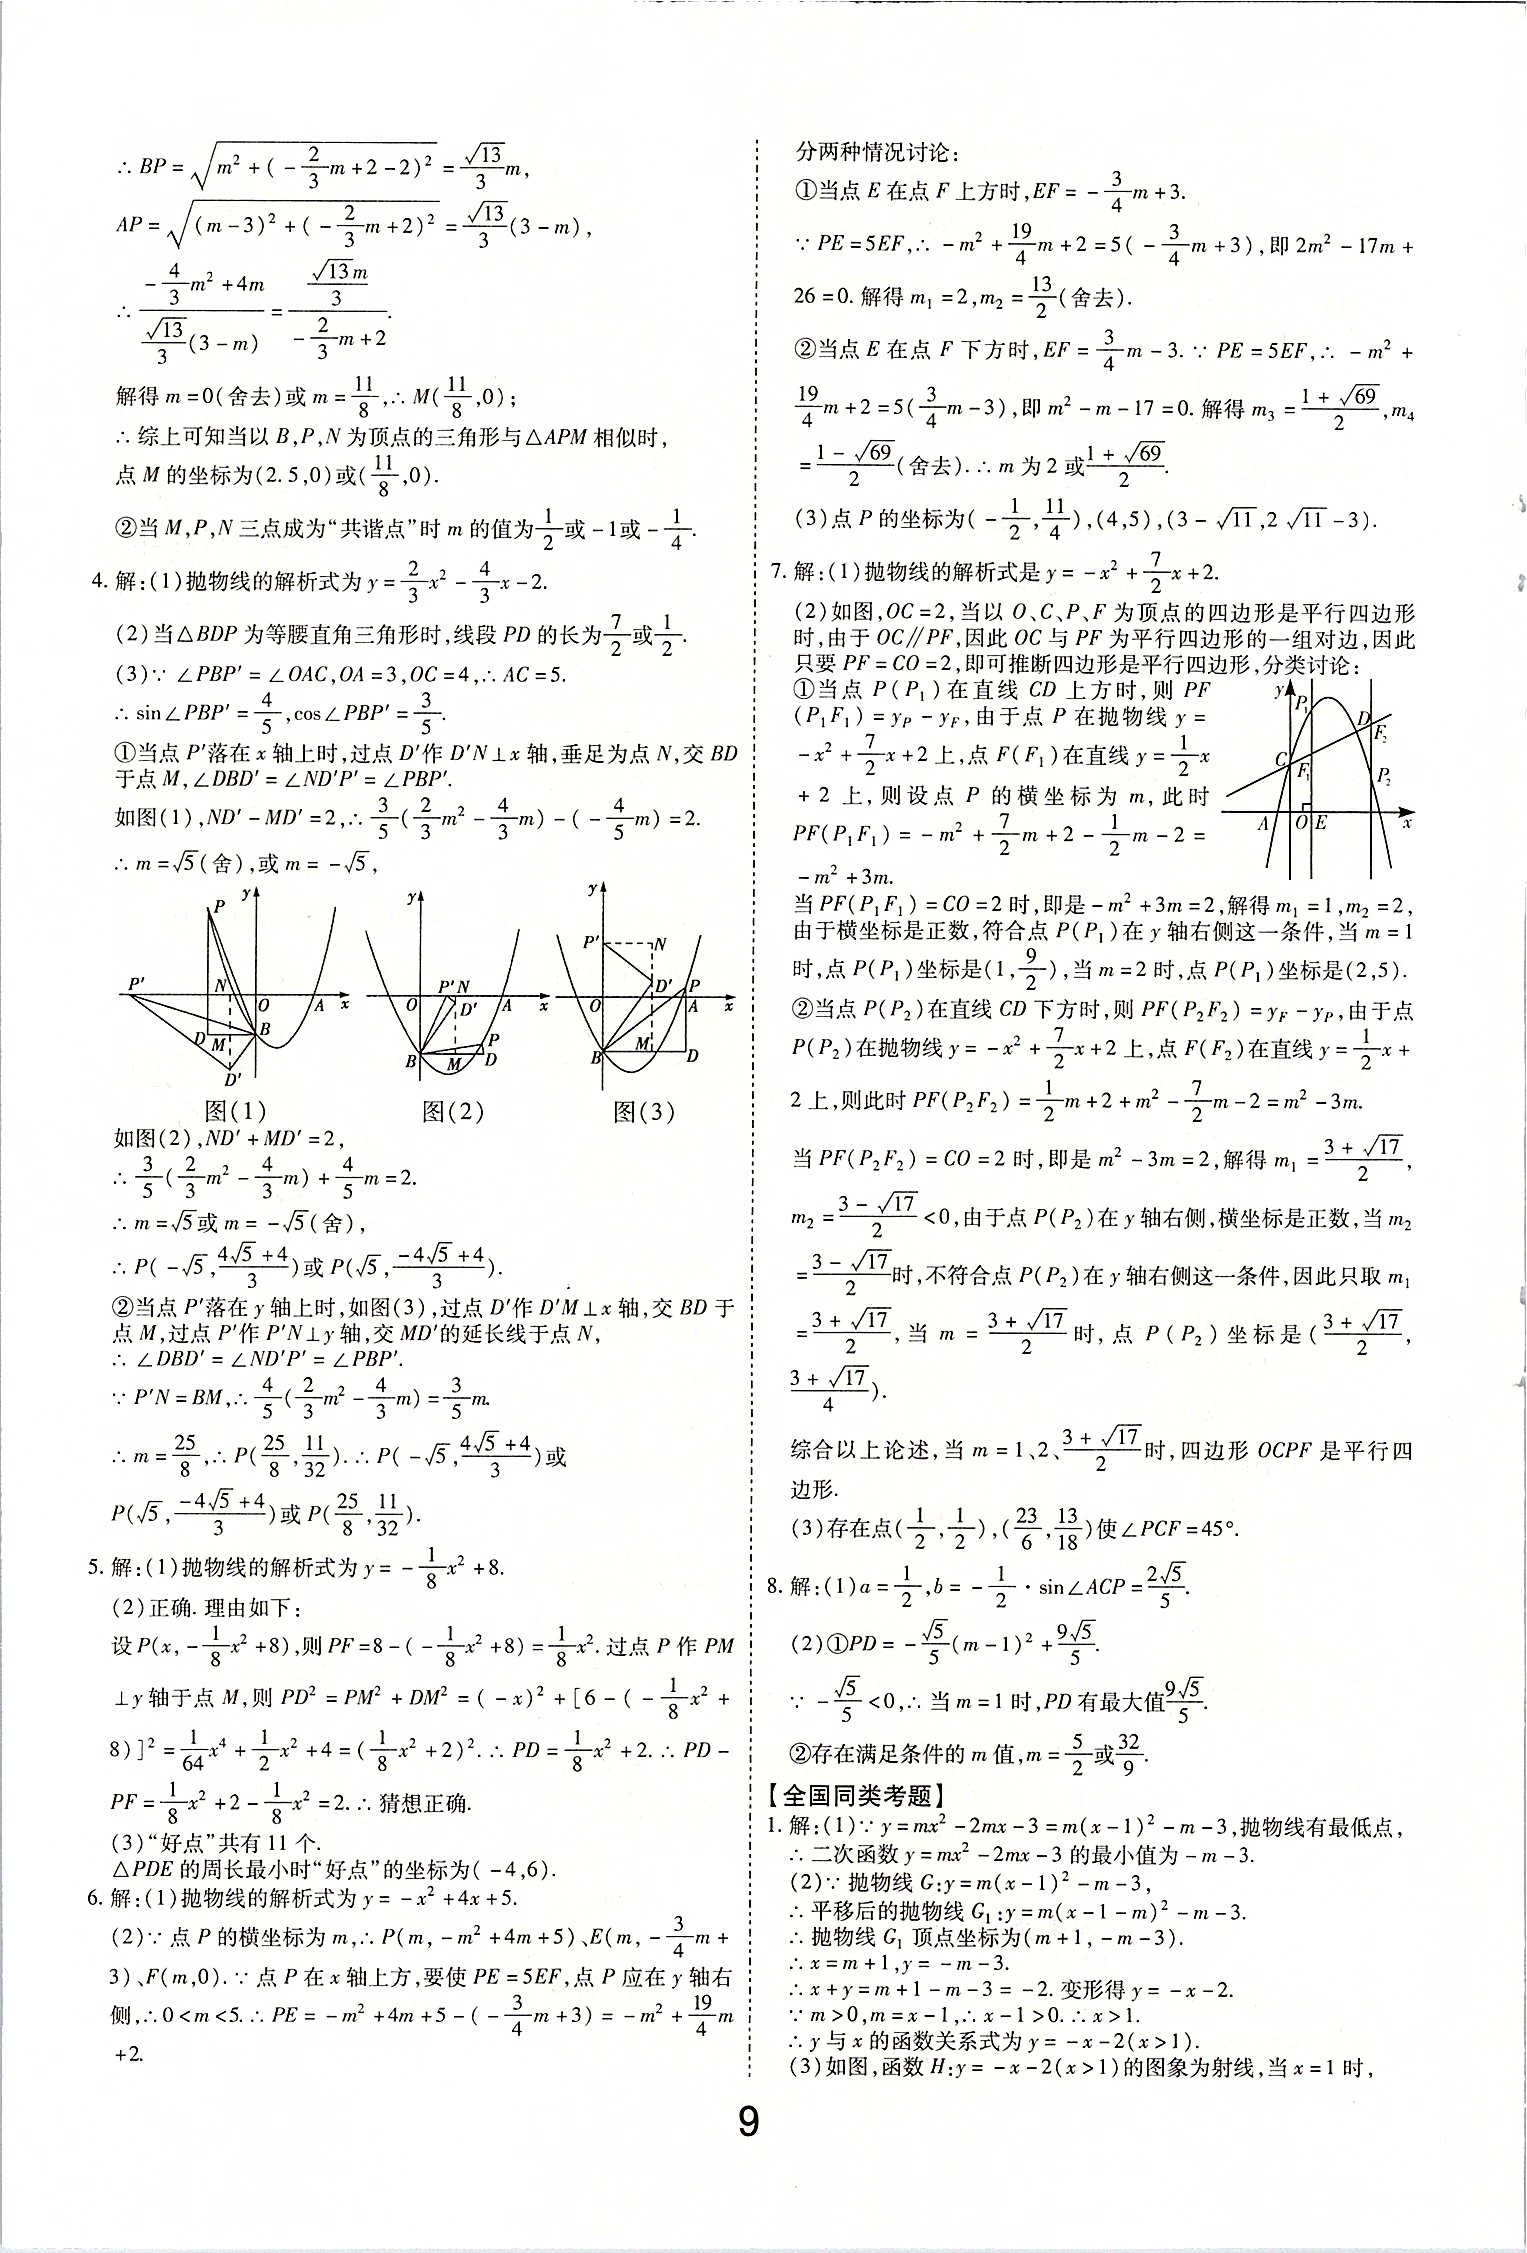 ∴ BP = √(m² + (-2/3m+2-2)²) = √13/3 m,
AP = √((m-3)² + (-2/3m+2)²) = √13/3(3-m),
∴ (-4/3m²+4m)/(√13/3(3-m)) = (√13m/3)/(-2/3m+2).
解得 m=0(舍去)或 m=11/8,∴ M(11/8,0);
∴ 综上可知当以 B,P,N 为顶点的三角形与△APM 相似时,
点 M 的坐标为(2.5,0)或(11/8,0).
②当 M,P,N 三点成为“共谐点”时 m 的值为1/2或-1或-1/4.
4. 解:(1)抛物线的解析式为 y=2/3x²-4/3x-2.
(2)当△BDP 为等腰直角三角形时,线段 PD 的长为7/2或1/2.
(3)∵ ∠PBP′=∠OAC,OA=3,OC=4,∴ AC=5.
∴ sin∠PBP′=4/5,cos∠PBP′=3/5.
①当点 P′落在 x 轴上时,过点 D′作 D′N⊥x 轴,垂足为点 N,交 BD
于点 M,∠DBD′=∠ND′P′=∠PBP′.
如图(1),ND′-MD′=2,∴ 3/5(2/3m²-4/3m)-(-4/5m)=2.
∴ m=√5(舍),或 m=-√5,
P y P′ N O A x D M B D′
y P′ N O D′ A x B M P D
y P′ N D′ P O A x B M D
图(1) 图(2) 图(3)
如图(2),ND′+MD′=2,
∴ 3/5(2/3m²-4/3m)+4/5m=2.
∴ m=√5或 m=-√5(舍),
∴ P(-√5,(4√5+4)/3)或 P(√5,(-4√5+4)/3).
②当点 P′落在 y 轴上时,如图(3),过点 D′作 D′M⊥x 轴,交 BD 于
点 M,过点 P′作 P′N⊥y 轴,交 MD′的延长线于点 N,
∴ ∠DBD′=∠ND′P′=∠PBP′.
∵ P′N=BM,∴ 4/5(2/3m²-4/3m)=3/5m.
∴ m=25/8,∴ P(25/8,11/32).∴ P(-√5,(4√5+4)/3)或
P(√5,(-4√5+4)/3)或 P(25/8,11/32).
5. 解:(1)抛物线的解析式为 y=-1/8x²+8.
(2)正确. 理由如下:
设 P(x,-1/8x²+8),则 PF=8-(-1/8x²+8)=1/8x². 过点 P 作 PM
⊥y 轴于点 M,则 PD²=PM²+DM²=(-x)²+[6-(-1/8x²+
8)]²=1/64x⁴+1/2x²+4=(1/8x²+2)².∴ PD=1/8x²+2.∴ PD-
PF=1/8x²+2-1/8x²=2.∴ 猜想正确.
(3)“好点”共有 11 个.
△PDE 的周长最小时“好点”的坐标为(-4,6).
6. 解:(1)抛物线的解析式为 y=-x²+4x+5.
(2)∵ 点 P 的横坐标为 m,∴ P(m,-m²+4m+5)、E(m,-3/4m+
3)、F(m,0).∵ 点 P 在 x 轴上方,要使 PE=5EF,点 P 应在 y 轴右
侧,∴ 0<m<5.∴ PE=-m²+4m+5-(-3/4m+3)=-m²+19/4m
+2.
分两种情况讨论:
①当点 E 在点 F 上方时,EF=-3/4m+3.
∵ PE=5EF,∴ -m²+19/4m+2=5(-3/4m+3),即 2m²-17m+
26=0. 解得 m₁=2,m₂=13/2(舍去).
②当点 E 在点 F 下方时,EF=3/4m-3.∵ PE=5EF,∴ -m²+
19/4m+2=5(3/4m-3),即 m²-m-17=0. 解得 m₃=(1+√69)/2,m₄
=(1-√69)/2(舍去).∴ m 为 2 或(1+√69)/2.
(3)点 P 的坐标为(-1/2,11/4),(4,5),(3-√11,2√11-3).
7. 解:(1)抛物线的解析式是 y=-x²+7/2x+2.
(2)如图,OC=2,当以 O、C、P、F 为顶点的四边形是平行四边形
时,由于 OC∥PF,因此 OC 与 PF 为平行四边形的一组对边,因此
只要 PF=CO=2,即可推断四边形是平行四边形,分类讨论:
①当点 P(P₁)在直线 CD 上方时,则 PF
(P₁F₁)=yP-yF,由于点 P 在抛物线 y=
-x²+7/2x+2 上,点 F(F₁)在直线 y=1/2x
+2 上,则设点 P 的横坐标为 m,此时
PF(P₁F₁)=-m²+7/2m+2-1/2m-2=
-m²+3m.
y P₁ D F₂ C F₁ P₂ A O E x
当 PF(P₁F₁)=CO=2 时,即是-m²+3m=2,解得 m₁=1,m₂=2,
由于横坐标是正数,符合点 P(P₁)在 y 轴右侧这一条件,当 m=1
时,点 P(P₁)坐标是(1,9/2),当 m=2 时,点 P(P₁)坐标是(2,5).
②当点 P(P₂)在直线 CD 下方时,则 PF(P₂F₂)=yF-yP,由于点
P(P₂)在抛物线 y=-x²+7/2x+2 上,点 F(F₂)在直线 y=1/2x+
2 上,则此时 PF(P₂F₂)=1/2m+2+m²-7/2m-2=m²-3m.
当 PF(P₂F₂)=CO=2 时,即是 m²-3m=2,解得 m₁=(3+√17)/2,
m₂=(3-√17)/2<0,由于点 P(P₂)在 y 轴右侧,横坐标是正数,当 m₂
=(3-√17)/2时,不符合点 P(P₂)在 y 轴右侧这一条件,因此只取 m₁
=(3+√17)/2,当 m=(3+√17)/2时,点 P(P₂)坐标是((3+√17)/2,
(3+√17)/4).
综合以上论述,当 m=1、2、(3+√17)/2时,四边形 OCPF 是平行四
边形.
(3)存在点(1/2,1/2),(23/6,13/18)使∠PCF=45°.
8. 解:(1)a=1/2,b=-1/2·sin∠ACP=2√5/5.
(2)①PD=-√5/5(m-1)²+9√5/5.
∵ -√5/5<0,∴ 当 m=1 时,PD 有最大值9√5/5.
②存在满足条件的 m 值,m=5/2或32/9.
【全国同类考题】
1. 解:(1)∵ y=mx²-2mx-3=m(x-1)²-m-3,抛物线有最低点,
∴ 二次函数 y=mx²-2mx-3 的最小值为-m-3.
(2)∵ 抛物线 G:y=m(x-1)²-m-3,
∴ 平移后的抛物线 G₁:y=m(x-1-m)²-m-3.
∴ 抛物线 G₁ 顶点坐标为(m+1,-m-3).
∴ x=m+1,y=-m-3.
∴ x+y=m+1-m-3=-2. 变形得 y=-x-2.
∵ m>0,m=x-1,∴ x-1>0.∴ x>1.
∴ y 与 x 的函数关系式为 y=-x-2(x>1).
(3)如图,函数 H:y=-x-2(x>1)的图象为射线,当 x=1 时,
9